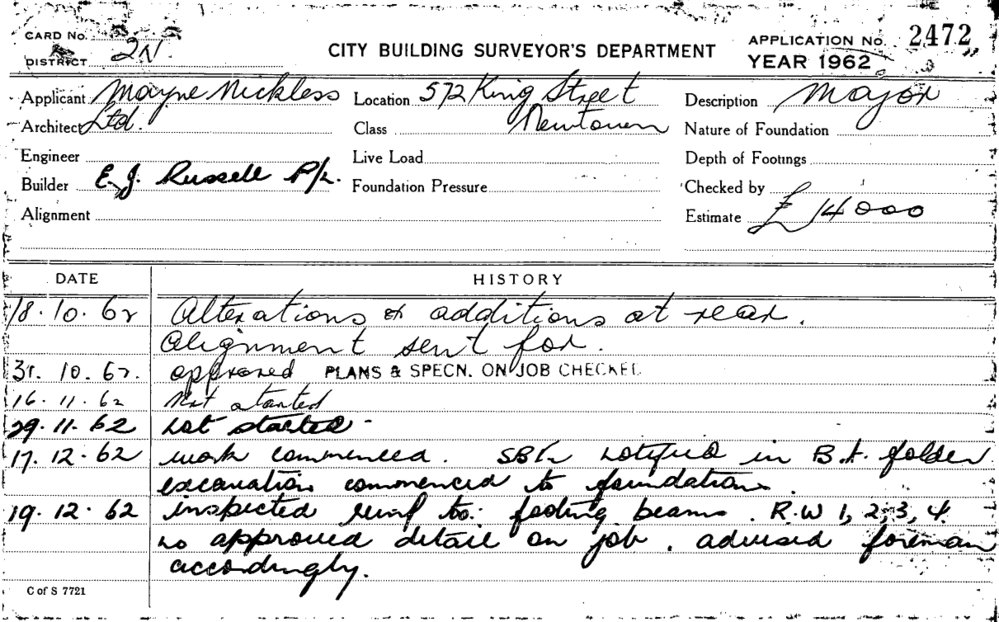 CARD No.
DISTRICT 2N
CITY BUILDING SURVEYOR'S DEPARTMENT
APPLICATION No. 2472
YEAR 1962
Applicant Mayne Nickless
Ltd.
Location 572 King Street
Newtown
Description Major
Architect
Class
Nature of Foundation
Engineer
Live Load
Depth of Footings
Builder E. J. Russell P/L.
Foundation Pressure
Checked by
Alignment
Estimate £ 14000
DATE HISTORY
18.10.62 Alterations & additions at rear.
Alignment sent for.
31.10.62. approved PLANS & SPECN. ON JOB CHECKED
16.11.62 Not started
29.11.62 Not started -
17.12.62 work commenced. notified in B.A. folder
excavation commenced to foundations.
19.12.62 inspected reinf to: footing beams. R.W 1, 2, 3, 4.
no approved detail on job. advised foreman
accordingly.
C of S 7721